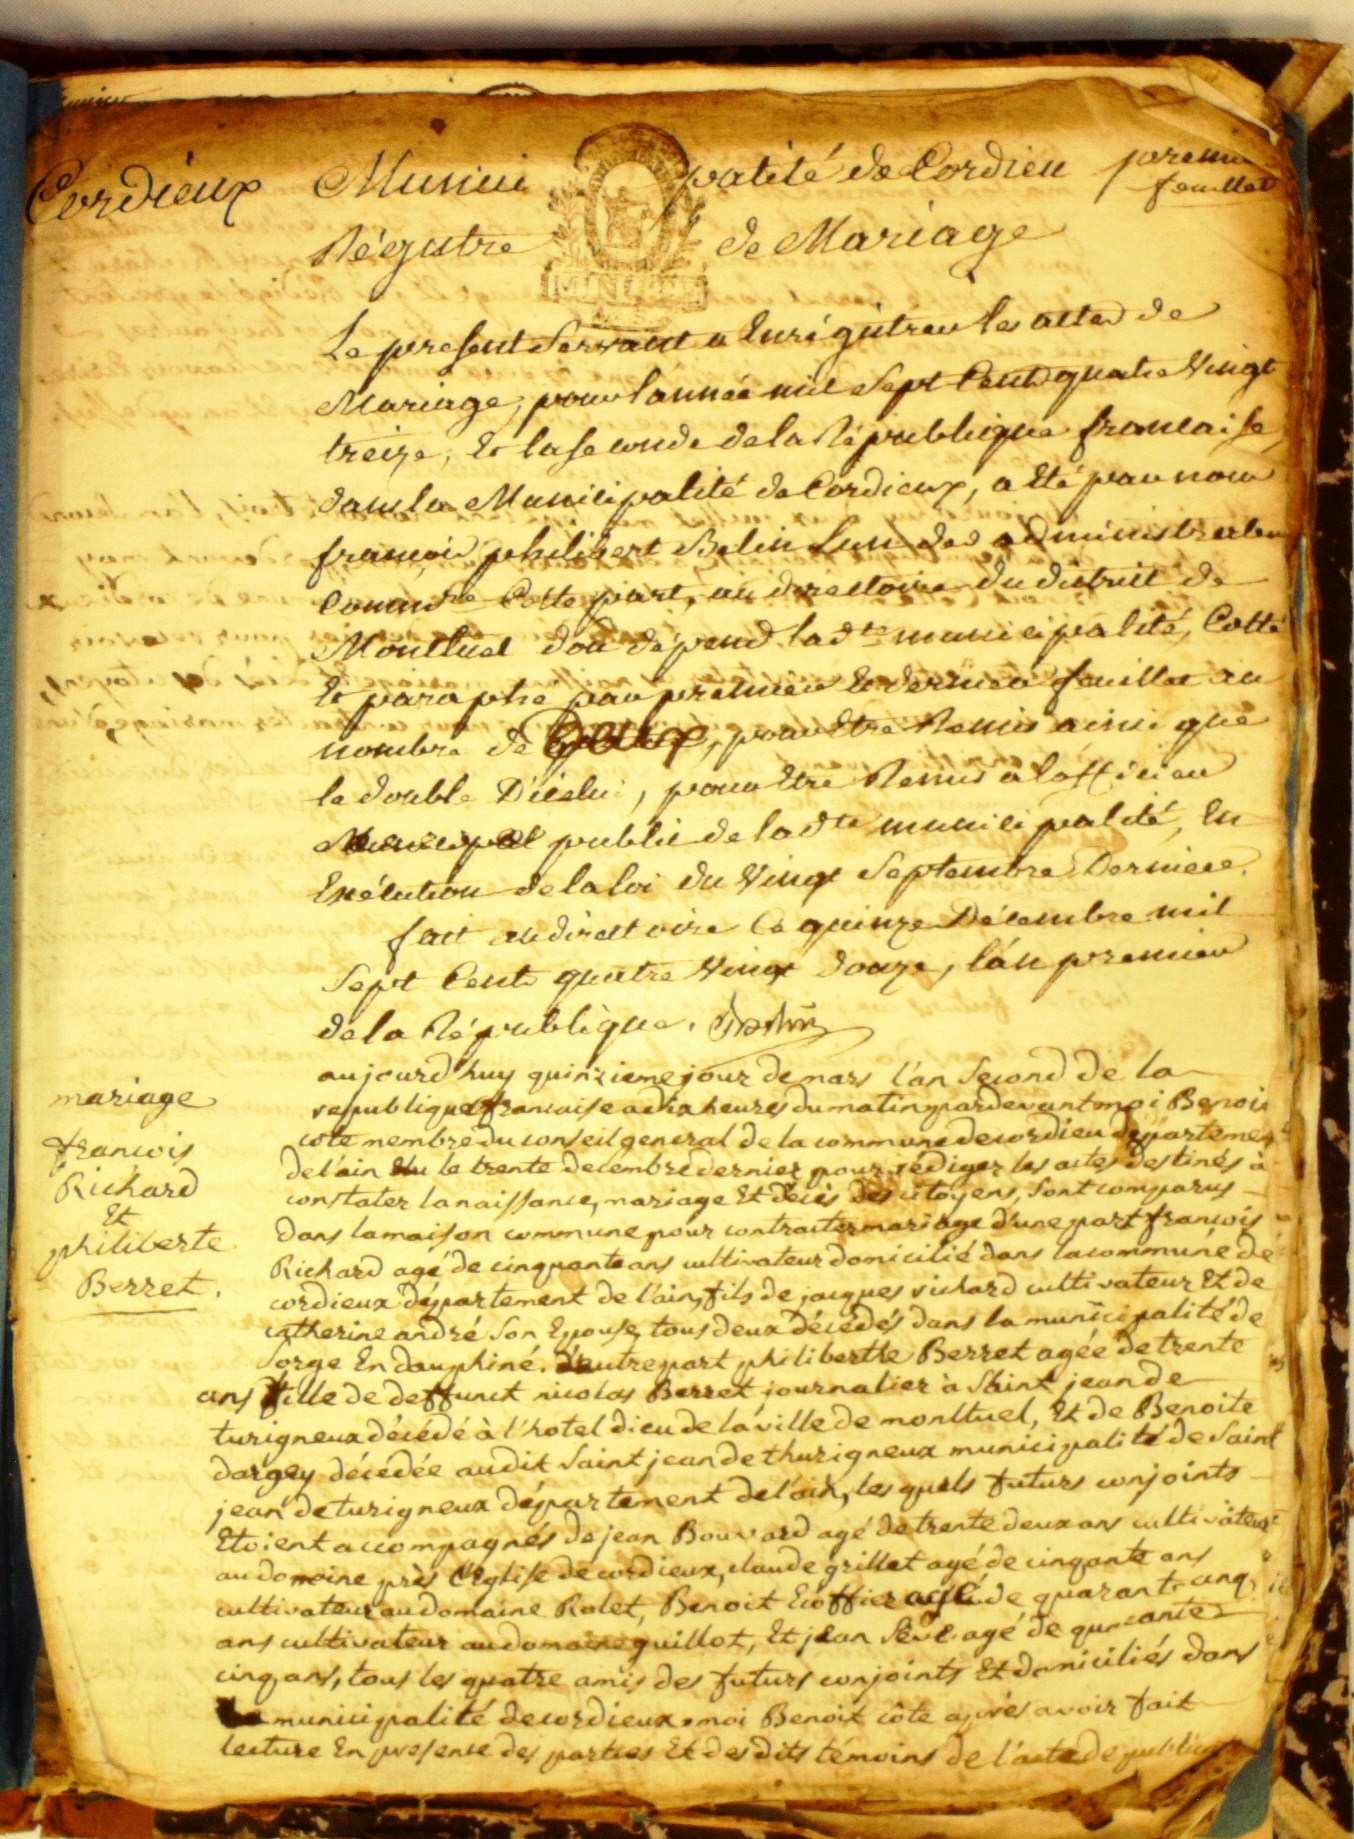 Cordieux
Munici palité de Cordieu
premier
feuillet
Régistre de Mariage
Le present Servant a Enrégistrer les actes de
Mariage, pour lannée mil Sept Cents quatre Vingt
treize, Et la seconde de la République francaise,
dans la Municipalité de Cordieux, a Eté par nous
françois philibert Belin Lun des administrateurs
Commre Cette part, au directoire du district de
Montluel dou dépend ladte municipalité, Cotté
Et paraphé par premier Et dernier feuillet au
nombre de Deux, pour Etre Remis ainsi que
le double D'icelui, pour Etre Remis a l'officier
Municipal public de ladte municipalité, En
Exécution de la loi du Vingt Septembre Dernier.
fait au directoire Ce quinze Décembre mil
Sept Cents quatre Vingt douze, l'an premier
de la République. Belin
mariage
francois
Richard
Et
philiberte
Berret.
aujourd'huy quinzieme jour de mars l'an Second de la
republique francaise a dix heures du matin pardevant moi Benoit
côte membre du conseil general de la commune de cordieu departement
de l'ain Elu le trente decembre dernier pour rédiger les actes destinés à
constater la naissance, mariage Et décès des citoyens, Sont comparus
dans la maison commune pour contracter mariage d'une part francois
Richard agé de cinquante ans cultivateur domicilié dans la commune de
cordieux département de l'ain, fils de jacques richard cultivateur Et de
catherine andré Son Epouse, tous deux décédés dans la municipalité de
Sorge En dauphiné. d'autre part philiberthe Berret agée de trente
ans fille de deffunct nicolas Berret journalier à Saint jean de
turigneux décédé à l'hotel dieu de la ville de montluel, Et de Benoite
dargey décédée audit Saint jean de thurigneux municipalité de Saint
jean de turigneux département de l'ain, les quels futurs conjoints
Etoient accompagnés de jean Bouvard agé de trente deux ans cultivateur
au domaine près l'Eglise de cordieux, claude grillet agé de cinqante ans
cultivateur au domaine Rolet, Benoit Ecoffier agé de quarante cinq
ans cultivateur au domaine guillot, Et jean Sève agé de quarante
cinq ans, tous les quatre amis des futurs conjoints Et domiciliés dans
la municipalité de cordieux. moi Benoit côte après avoir fait
lecture En presence des parties Et des dits témoins de l'acte de